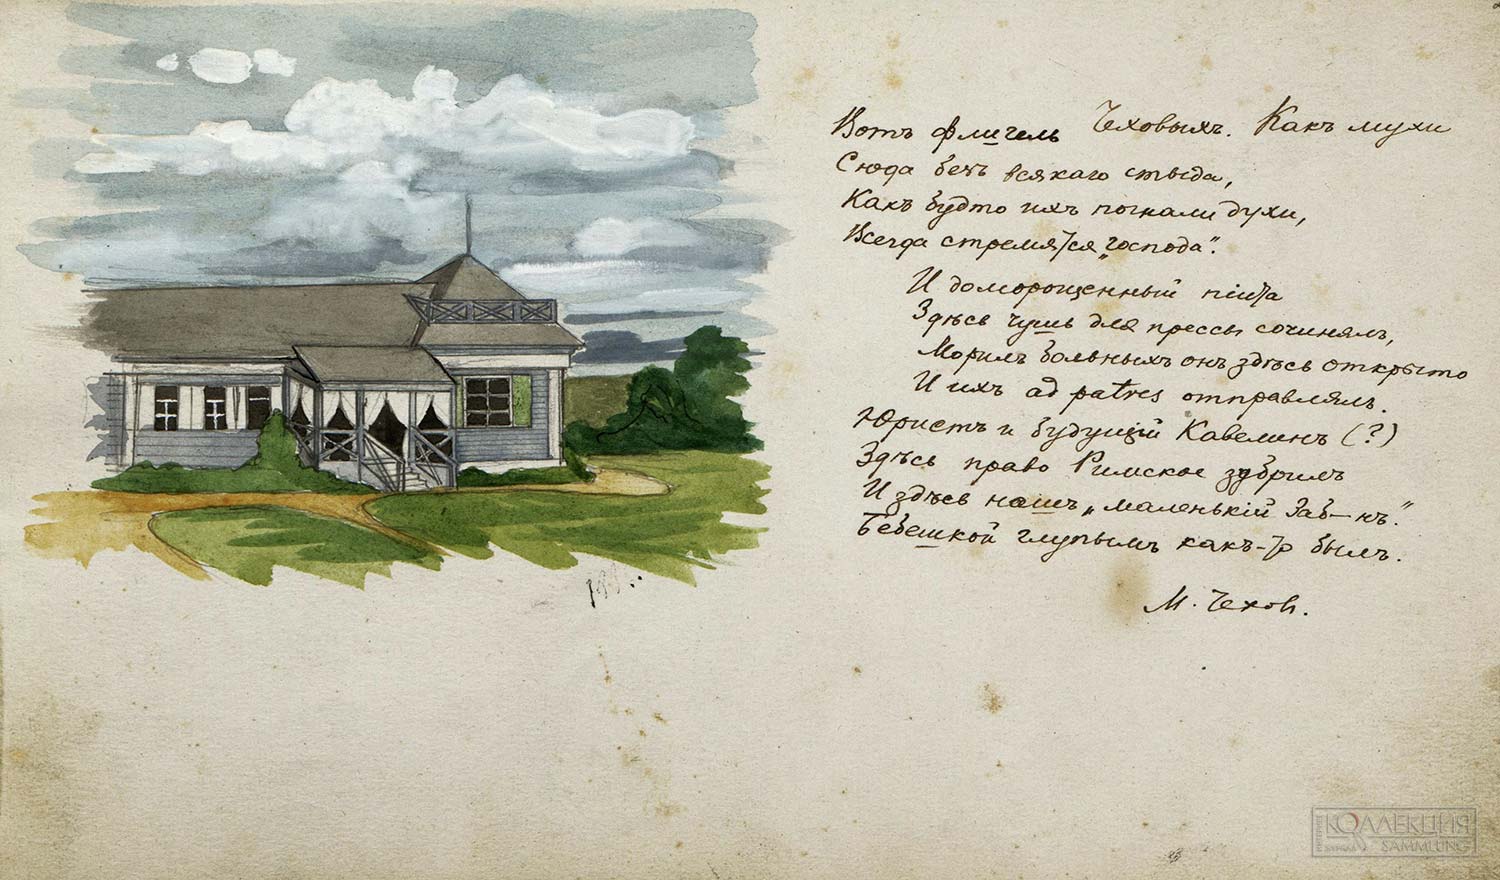 Вотъ флигель Чеховыхъ. Какъ мухи
Сюда безъ всякаго стыда,
Какъ будто ихъ погнали духи,
Всегда стремятся „господа“.
И доморощенный піита
Здѣсь чушь для прессы сочинялъ,
Морилъ больныхъ онъ здѣсь открыто
И ихъ ad patres отправлялъ.
Юристъ и будущій Кавелинъ (?)
Здѣсь право Римское зубрилъ
И здѣсь нашъ „маленькій Заб–нъ“.
Бебешкой глупымъ какъ-то былъ.
М. Чехов.
КОЛЛЕКЦИЯ
SAMMLUNG